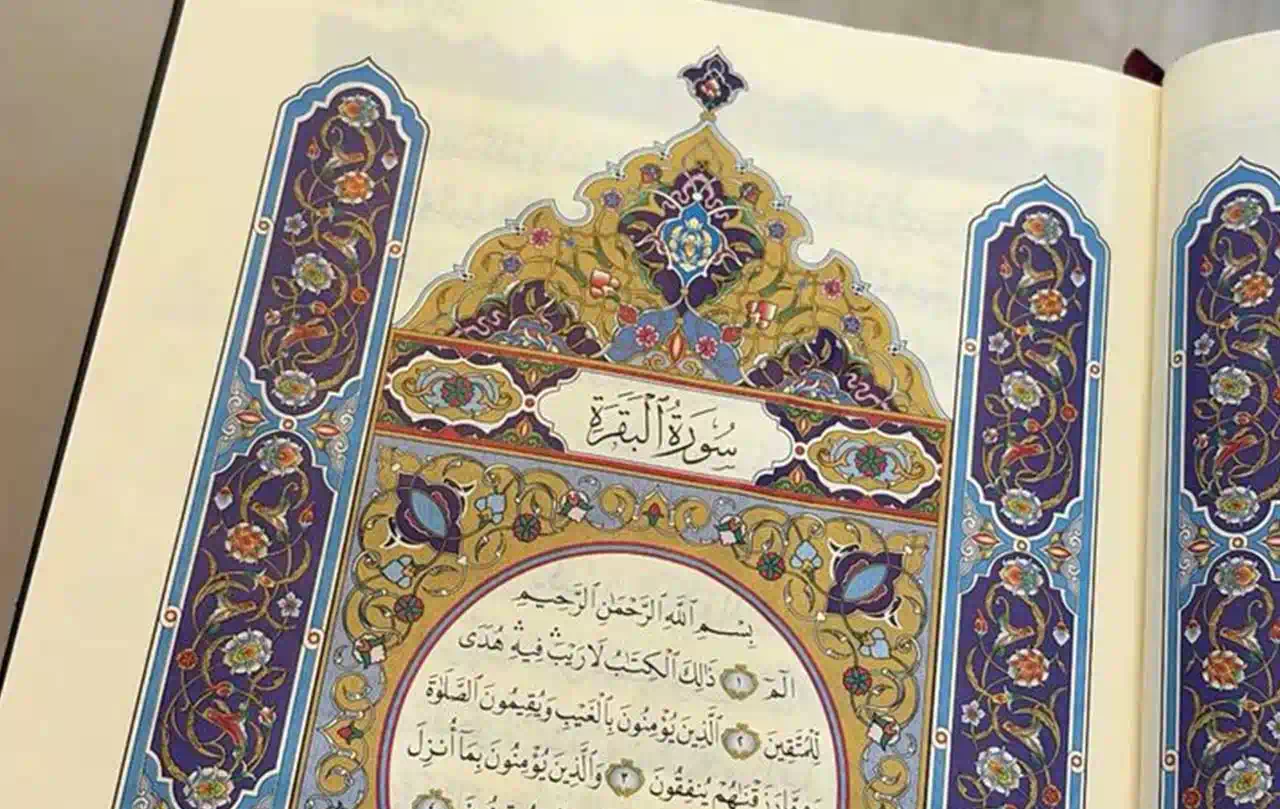 سُورَةُ ٱلْبَقَرَةِ
بِسْمِ ٱللَّهِ ٱلرَّحْمَٰنِ ٱلرَّحِيمِ
الٓمٓ ١ ذَٰلِكَ ٱلْكِتَٰبُ لَا رَيْبَ ۛ فِيهِ ۛ هُدًى
لِّلْمُتَّقِينَ ٢ ٱلَّذِينَ يُؤْمِنُونَ بِٱلْغَيْبِ وَيُقِيمُونَ ٱلصَّلَوٰةَ
وَمِمَّا رَزَقْنَٰهُمْ يُنفِقُونَ ٣ وَٱلَّذِينَ يُؤْمِنُونَ بِمَآ أُنزِلَ